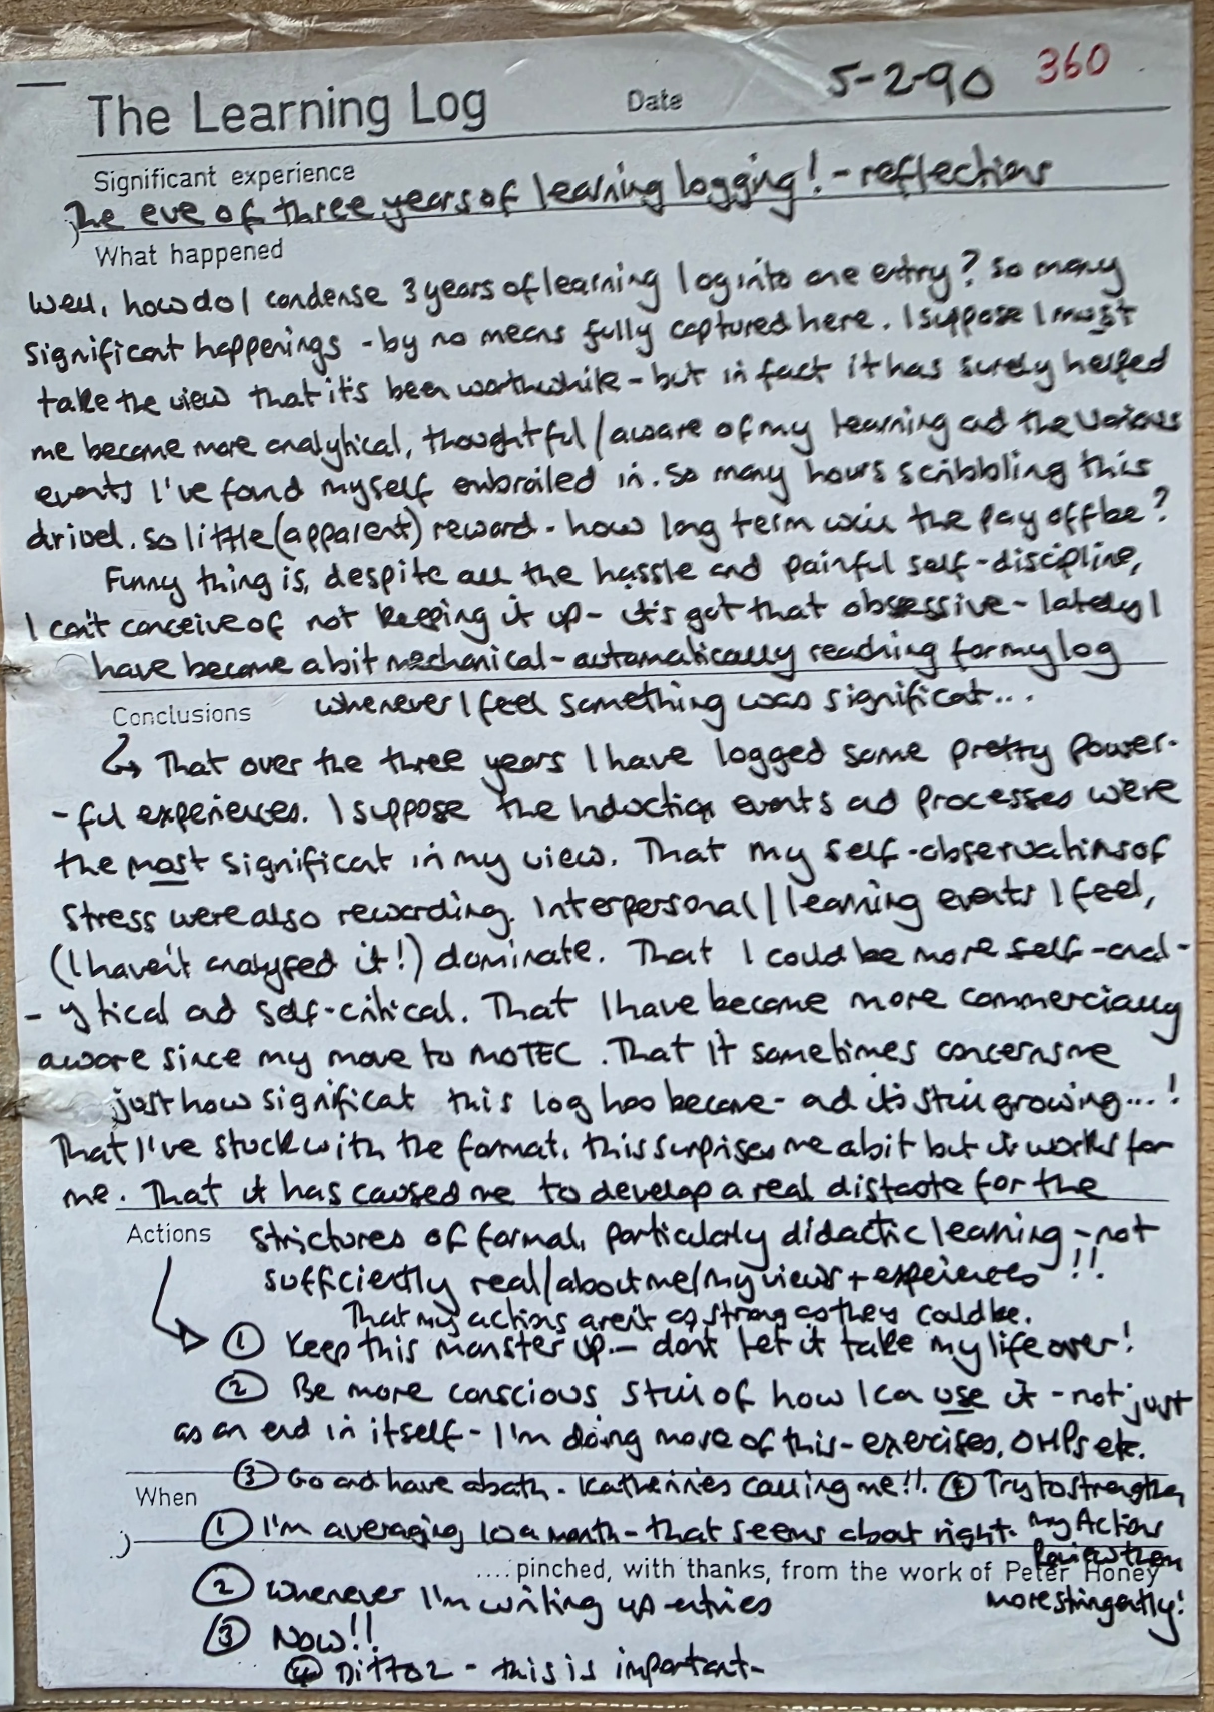 The Learning Log Date 5-2-90 360
Significant experience
The eve of three years of learning logging! - reflections
What happened
Well, how do I condense 3 years of learning log into one entry? So many
significant happenings - by no means fully captured here. I suppose I must
take the view that it's been worthwhile - but in fact it has surely helped
me become more analytical, thoughtful / aware of my learning and the various
events I've found myself embroiled in. So many hours scribbling this
drivel. So little (apparent) reward - how long term will the pay off be?
Funny thing is, despite all the hassle and painful self-discipline,
I can't conceive of not keeping it up - it's got that obsessive - lately I
have become a bit mechanical - automatically reaching for my log
whenever I feel something was significant...
Conclusions
↳ That over the three years I have logged some pretty power-
-ful experiences. I suppose the Induction events and processes were
the most significant in my view. That my self-observations of
stress were also rewarding. Interpersonal / learning events I feel,
(I haven't analysed it!) dominate. That I could be more self-anal-
-ytical and self-critical. That I have become more commercially
aware since my move to MOTEC. That it sometimes concerns me
just how significant this log has become - and it's still growing...!
That I've stuck with the format, this surprises me a bit but it works for
me. That it has caused me to develop a real distaste for the
Actions strictures of formal, particularly didactic learning - not
sufficiently real/about me/my views + experiences!!
That my actions aren't as strong as they could be.
① Keep this monster up - don't let it take my life over!
② Be more conscious still of how I can use it - not just
as an end in itself - I'm doing more of this - exercises, OHPs etc.
③ Go and have a bath - Katherine's calling me!!. ④ Try to strengthen
When
① I'm averaging 10 a month - that seems about right. my Actions
Review them
.... pinched, with thanks, from the work of Peter Honey
② Whenever I'm writing up entries more stringently!
③ Now!!
④ Ditto 2 - this is important -